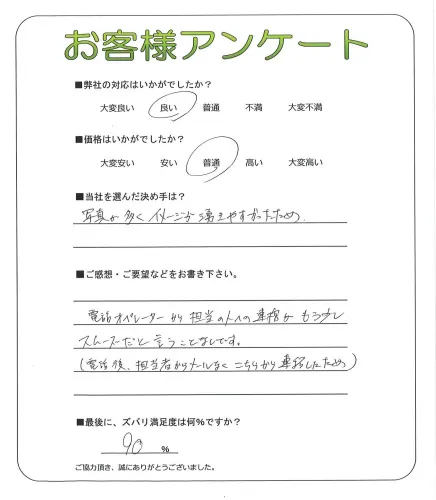 お客様アンケート
■弊社の対応はいかがでしたか？
大変良い 良い 普通 不満 大変不満
■価格はいかがでしたか？
大変安い 安い 普通 高い 大変高い
■当社を選んだ決め手は？
写真が多くイメージが湧きやすかったため
■ご感想・ご要望などをお書き下さい。
電話オペレーターから担当の人への連携がもう少し
スムーズだと言うことなしです。
(電話後、担当者からメールなくこちらから連絡したため)
■最後に、ズバリ満足度は何%ですか？
90 %
ご協力頂き、誠にありがとうございました。